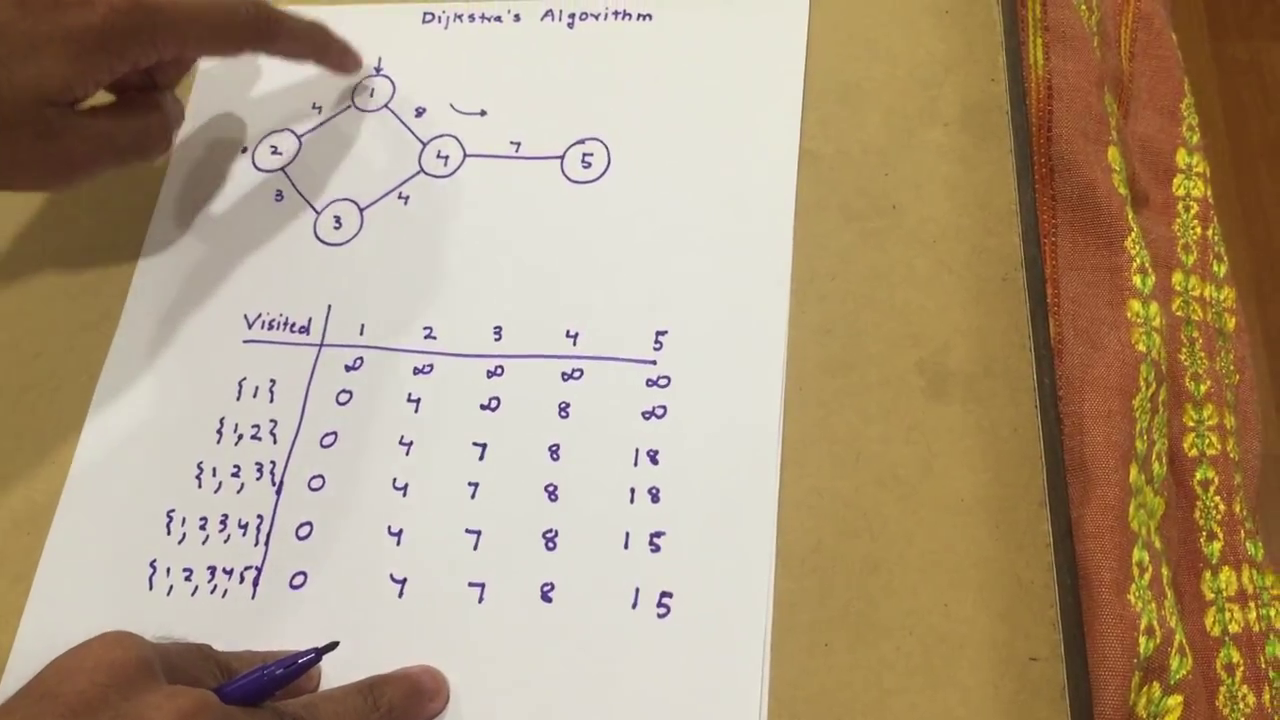 Dijkstra's Algorithm
1
4
8
2
4
7
5
3
4
3
Visited 1 2 3 4 5
∞ ∞ ∞ ∞ ∞
{1} 0 4 ∞ 8 ∞
{1,2} 0 4 7 8 18
{1,2,3} 0 4 7 8 18
{1,2,3,4} 0 4 7 8 15
{1,2,3,4,5} 0 4 7 8 15